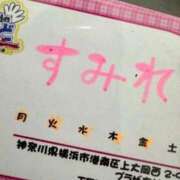 すみれ
月 火 水 木 金 土
神奈川県横浜市港南区上大岡西2-